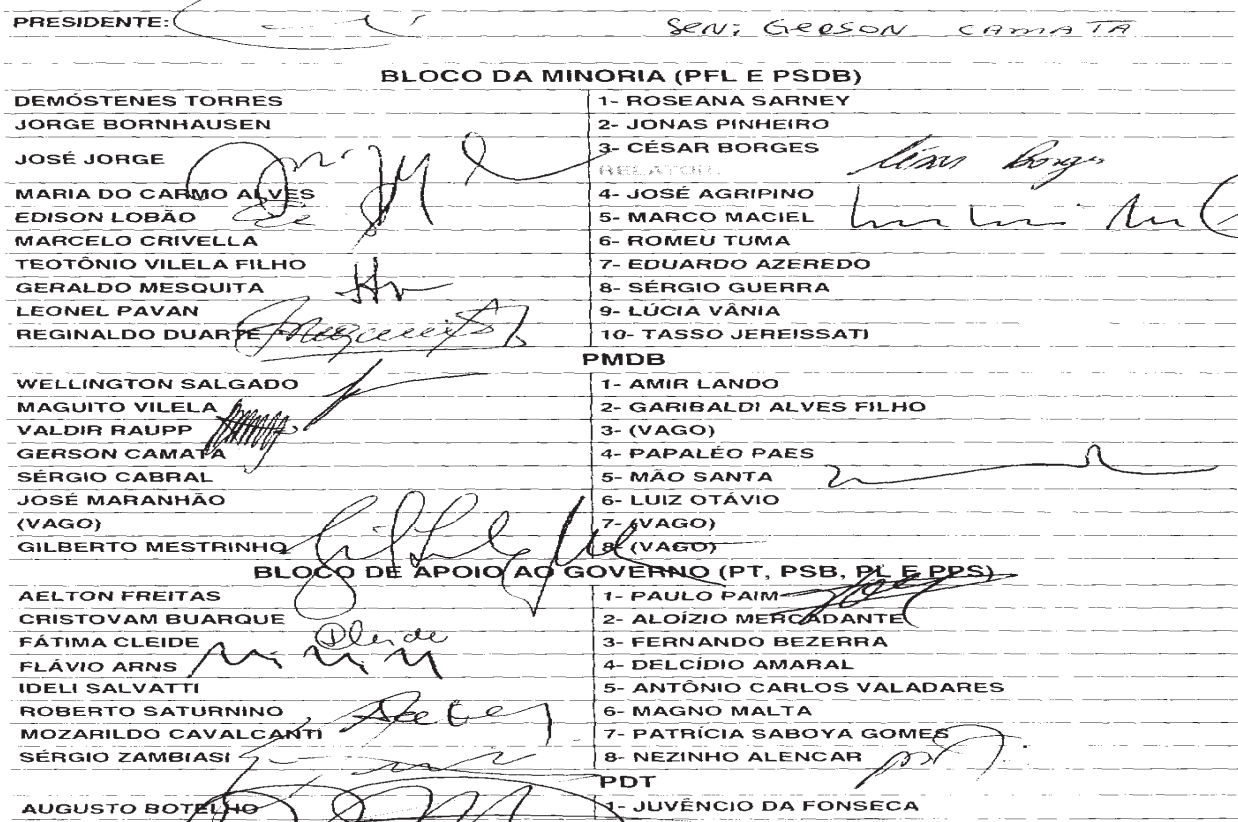 PRESIDENTE: SEN: GERSON CAMATA
BLOCO DA MINORIA (PFL E PSDB)
DEMÓSTENES TORRES 1- ROSEANA SARNEY
JORGE BORNHAUSEN 2- JONAS PINHEIRO
JOSÉ JORGE 3- CÉSAR BORGES César Borges
RELATOR:
MARIA DO CARMO ALVES 4- JOSÉ AGRIPINO
EDISON LOBÃO 5- MARCO MACIEL
MARCELO CRIVELLA 6- ROMEU TUMA
TEOTÔNIO VILELA FILHO 7- EDUARDO AZEREDO
GERALDO MESQUITA 8- SÉRGIO GUERRA
LEONEL PAVAN 9- LÚCIA VÂNIA
REGINALDO DUARTE 10- TASSO JEREISSATI
PMDB
WELLINGTON SALGADO 1- AMIR LANDO
MAGUITO VILELA 2- GARIBALDI ALVES FILHO
VALDIR RAUPP 3- (VAGO)
GERSON CAMATA 4- PAPALÉO PAES
SÉRGIO CABRAL 5- MÃO SANTA
JOSÉ MARANHÃO 6- LUIZ OTÁVIO
(VAGO) 7- (VAGO)
GILBERTO MESTRINHO 8- (VAGO)
BLOCO DE APOIO AO GOVERNO (PT, PSB, PL E PPS)
AELTON FREITAS 1- PAULO PAIM
CRISTOVAM BUARQUE 2- ALOÍZIO MERCADANTE
FÁTIMA CLEIDE 3- FERNANDO BEZERRA
FLÁVIO ARNS 4- DELCÍDIO AMARAL
IDELI SALVATTI 5- ANTÔNIO CARLOS VALADARES
ROBERTO SATURNINO 6- MAGNO MALTA
MOZARILDO CAVALCANTI 7- PATRÍCIA SABOYA GOMES
SÉRGIO ZAMBIASI 8- NEZINHO ALENCAR
PDT
AUGUSTO BOTELHO 1- JUVÊNCIO DA FONSECA